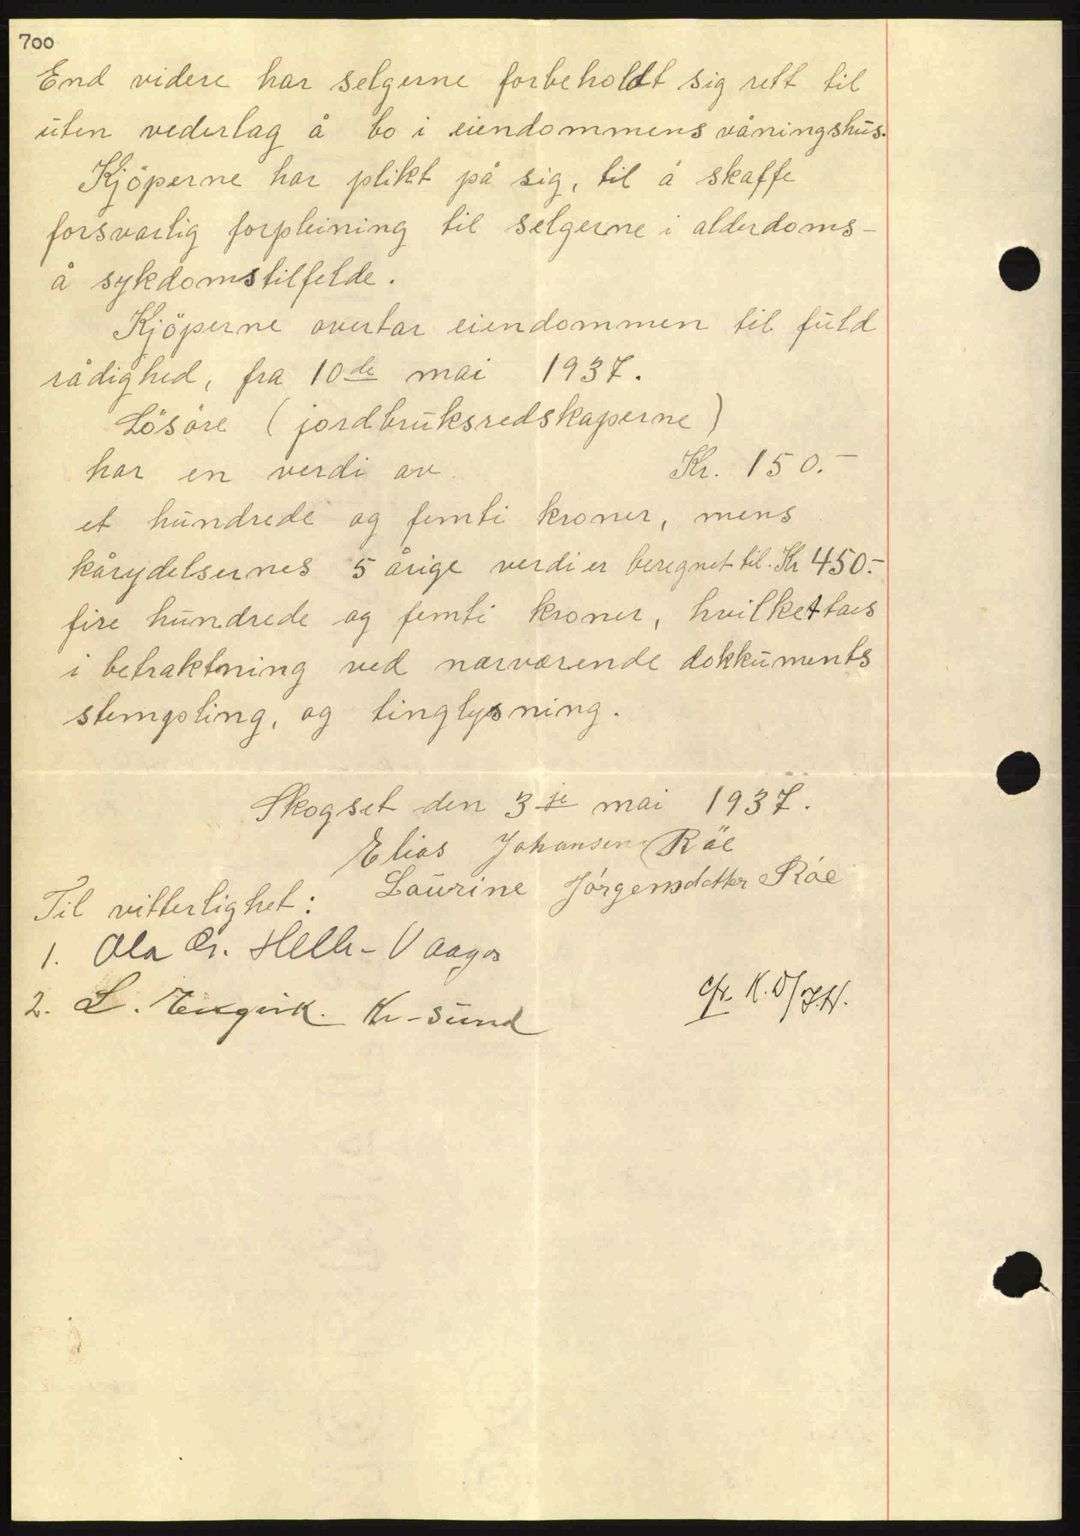 700
End videre har selgerne forbeholdt sig rett til
uten vederlag å bo i eiendommens våningshus.
Kjöperne har plikt på sig, til å skaffe
forsvarlig forpleining til selgerne i alderdoms-
å sykdomstilfelde.
Kjöperne overtar eiendommen til fuld
rådighed, fra 10de mai 1937.
Lösöre (jordbruksredskaperne)
har en verdi av Kr. 150.-
et hundrede og femti kroner, mens
kårydelsernes 5 årige verdi er beregnet til Kr 450.-
fire hundrede og femti kroner, hvilket taes
i betraktning ved nærværende dokkuments
stempling, og tinglysning.
Skogset den 3je mai 1937.
Elias Johansen Röe
Laurine Jörgensdatter Röe
Til vitterlighet:
1. Ola Chr. Helle - Vaagos
2. L. Kr-sund